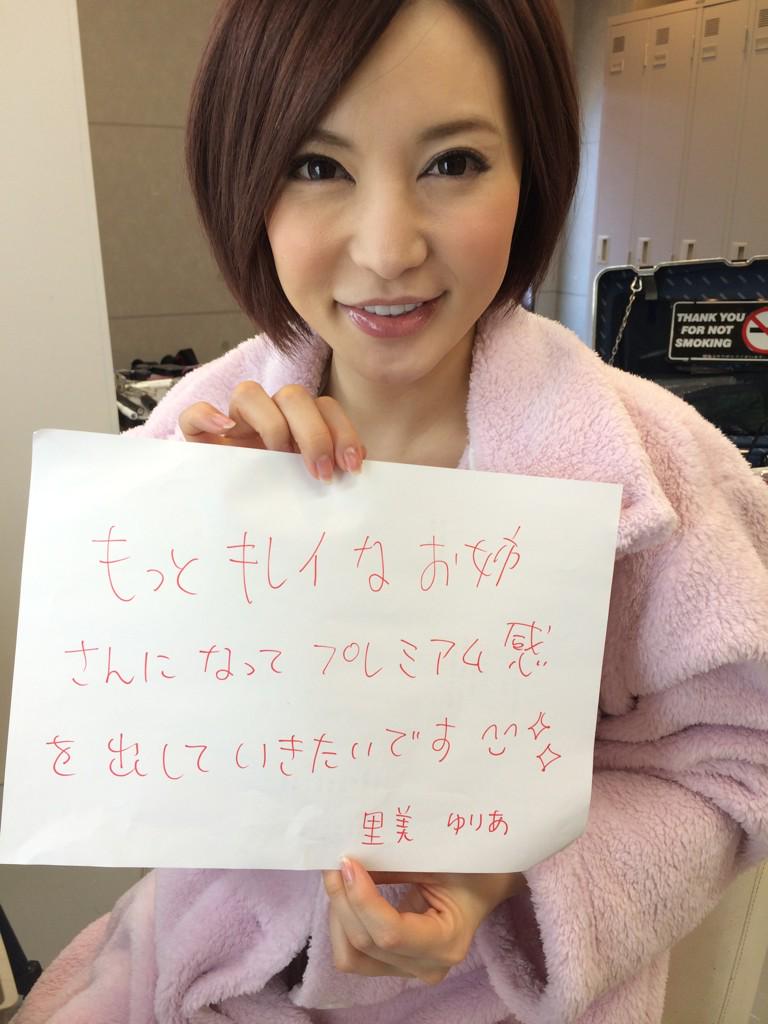 もっと キレイ な お姉
さんに なって プレミアム 感
を 出して いきたいです
里美 ゆりあ
THANK YOU
FOR NOT
SMOKING